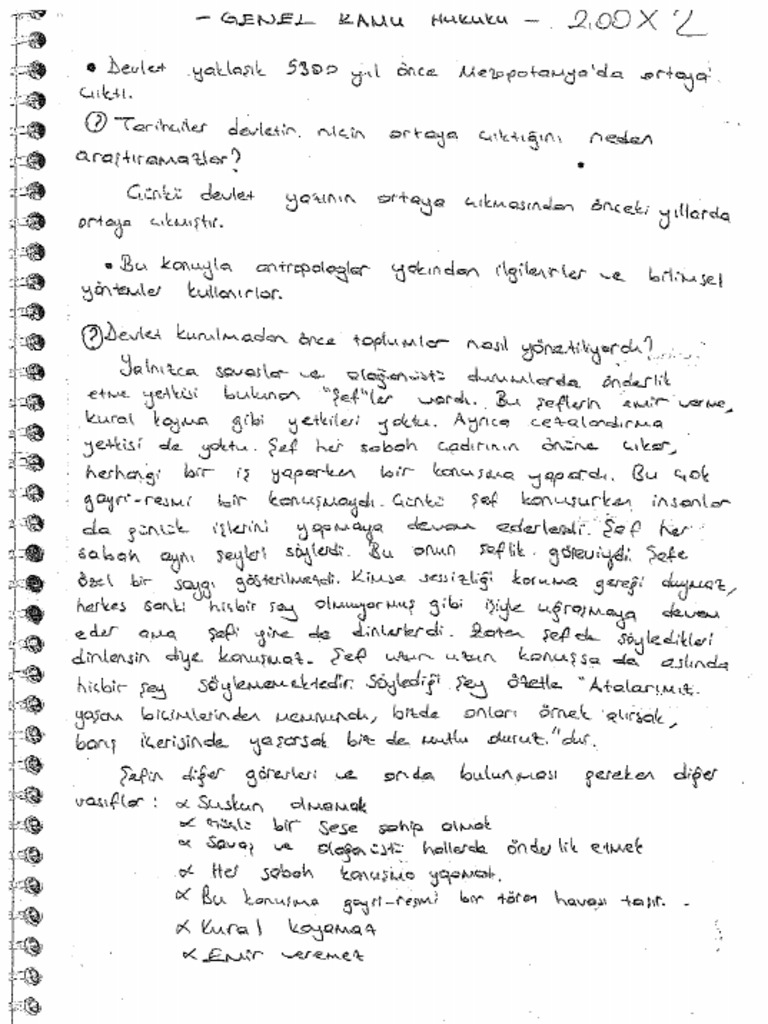 - GENEL KAMU HUKUKU - 2,00 X 2
• Devlet yaklaşık 5300 yıl önce Mezopotamya'da ortaya
çıktı.
? Tarihçiler devletin niçin ortaya çıktığını neden
araştıramazlar?
Çünkü devlet yazının ortaya çıkmasından önceki yıllarda
ortaya çıkmıştır.
• Bu konuyla antropologlar yakından ilgilenirler ve bilimsel
yöntemler kullanırlar.
? Devlet kurulmadan önce toplumlar nasıl yönetiliyordu?
Yalnızca savaşlar ve olağanüstü durumlarda önderlik
etme yetkisi bulunan "şef"ler vardı. Bu şeflerin emir verme,
kural koyma gibi yetkileri yoktu. Ayrıca cezalandırma
yetkisi de yoktu. Şef her sabah çadırının önüne çıkar,
herhangi bir iş yaparken bir konuşma yapardı. Bu çok
gayri-resmi bir konuşmaydı. Çünkü şef konuşurken insanlar
da günlük işlerini yapmaya devam ederlerdi. Şef her
sabah aynı şeyleri söylerdi. Bu onun şeflik göreviydi. Şefe
özel bir saygı gösterilmezdi. Kimse sessizliği koruma gereği duymaz,
herkes sanki hiçbir şey olmuyormuş gibi işiyle uğraşmaya devam
eder ama şefi yine de dinlerlerdi. Zaten şef de söyledikleri
dinlensin diye konuşmaz. Şef uzun uzun konuşsa da aslında
hiçbir şey söylememektedir. Söylediği şey özetle "Atalarımız
yaşam biçimlerinden memnundu, bizde onları örnek alırsak,
barış içerisinde yaşarsak biz de mutlu oluruz." dur.
Şefin diğer görevleri ve onda bulunması gereken diğer
vasıflar : ∝ Suskun olmamak
∝ Güçlü bir sese sahip olmak
∝ Savaş ve olağanüstü hallerde önderlik etmek
∝ Her sabah konuşma yapmak.
∝ Bu konuşma gayri-resmi bir tören havası taşır. -
∝ Kural koyamaz
∝ Emir veremez